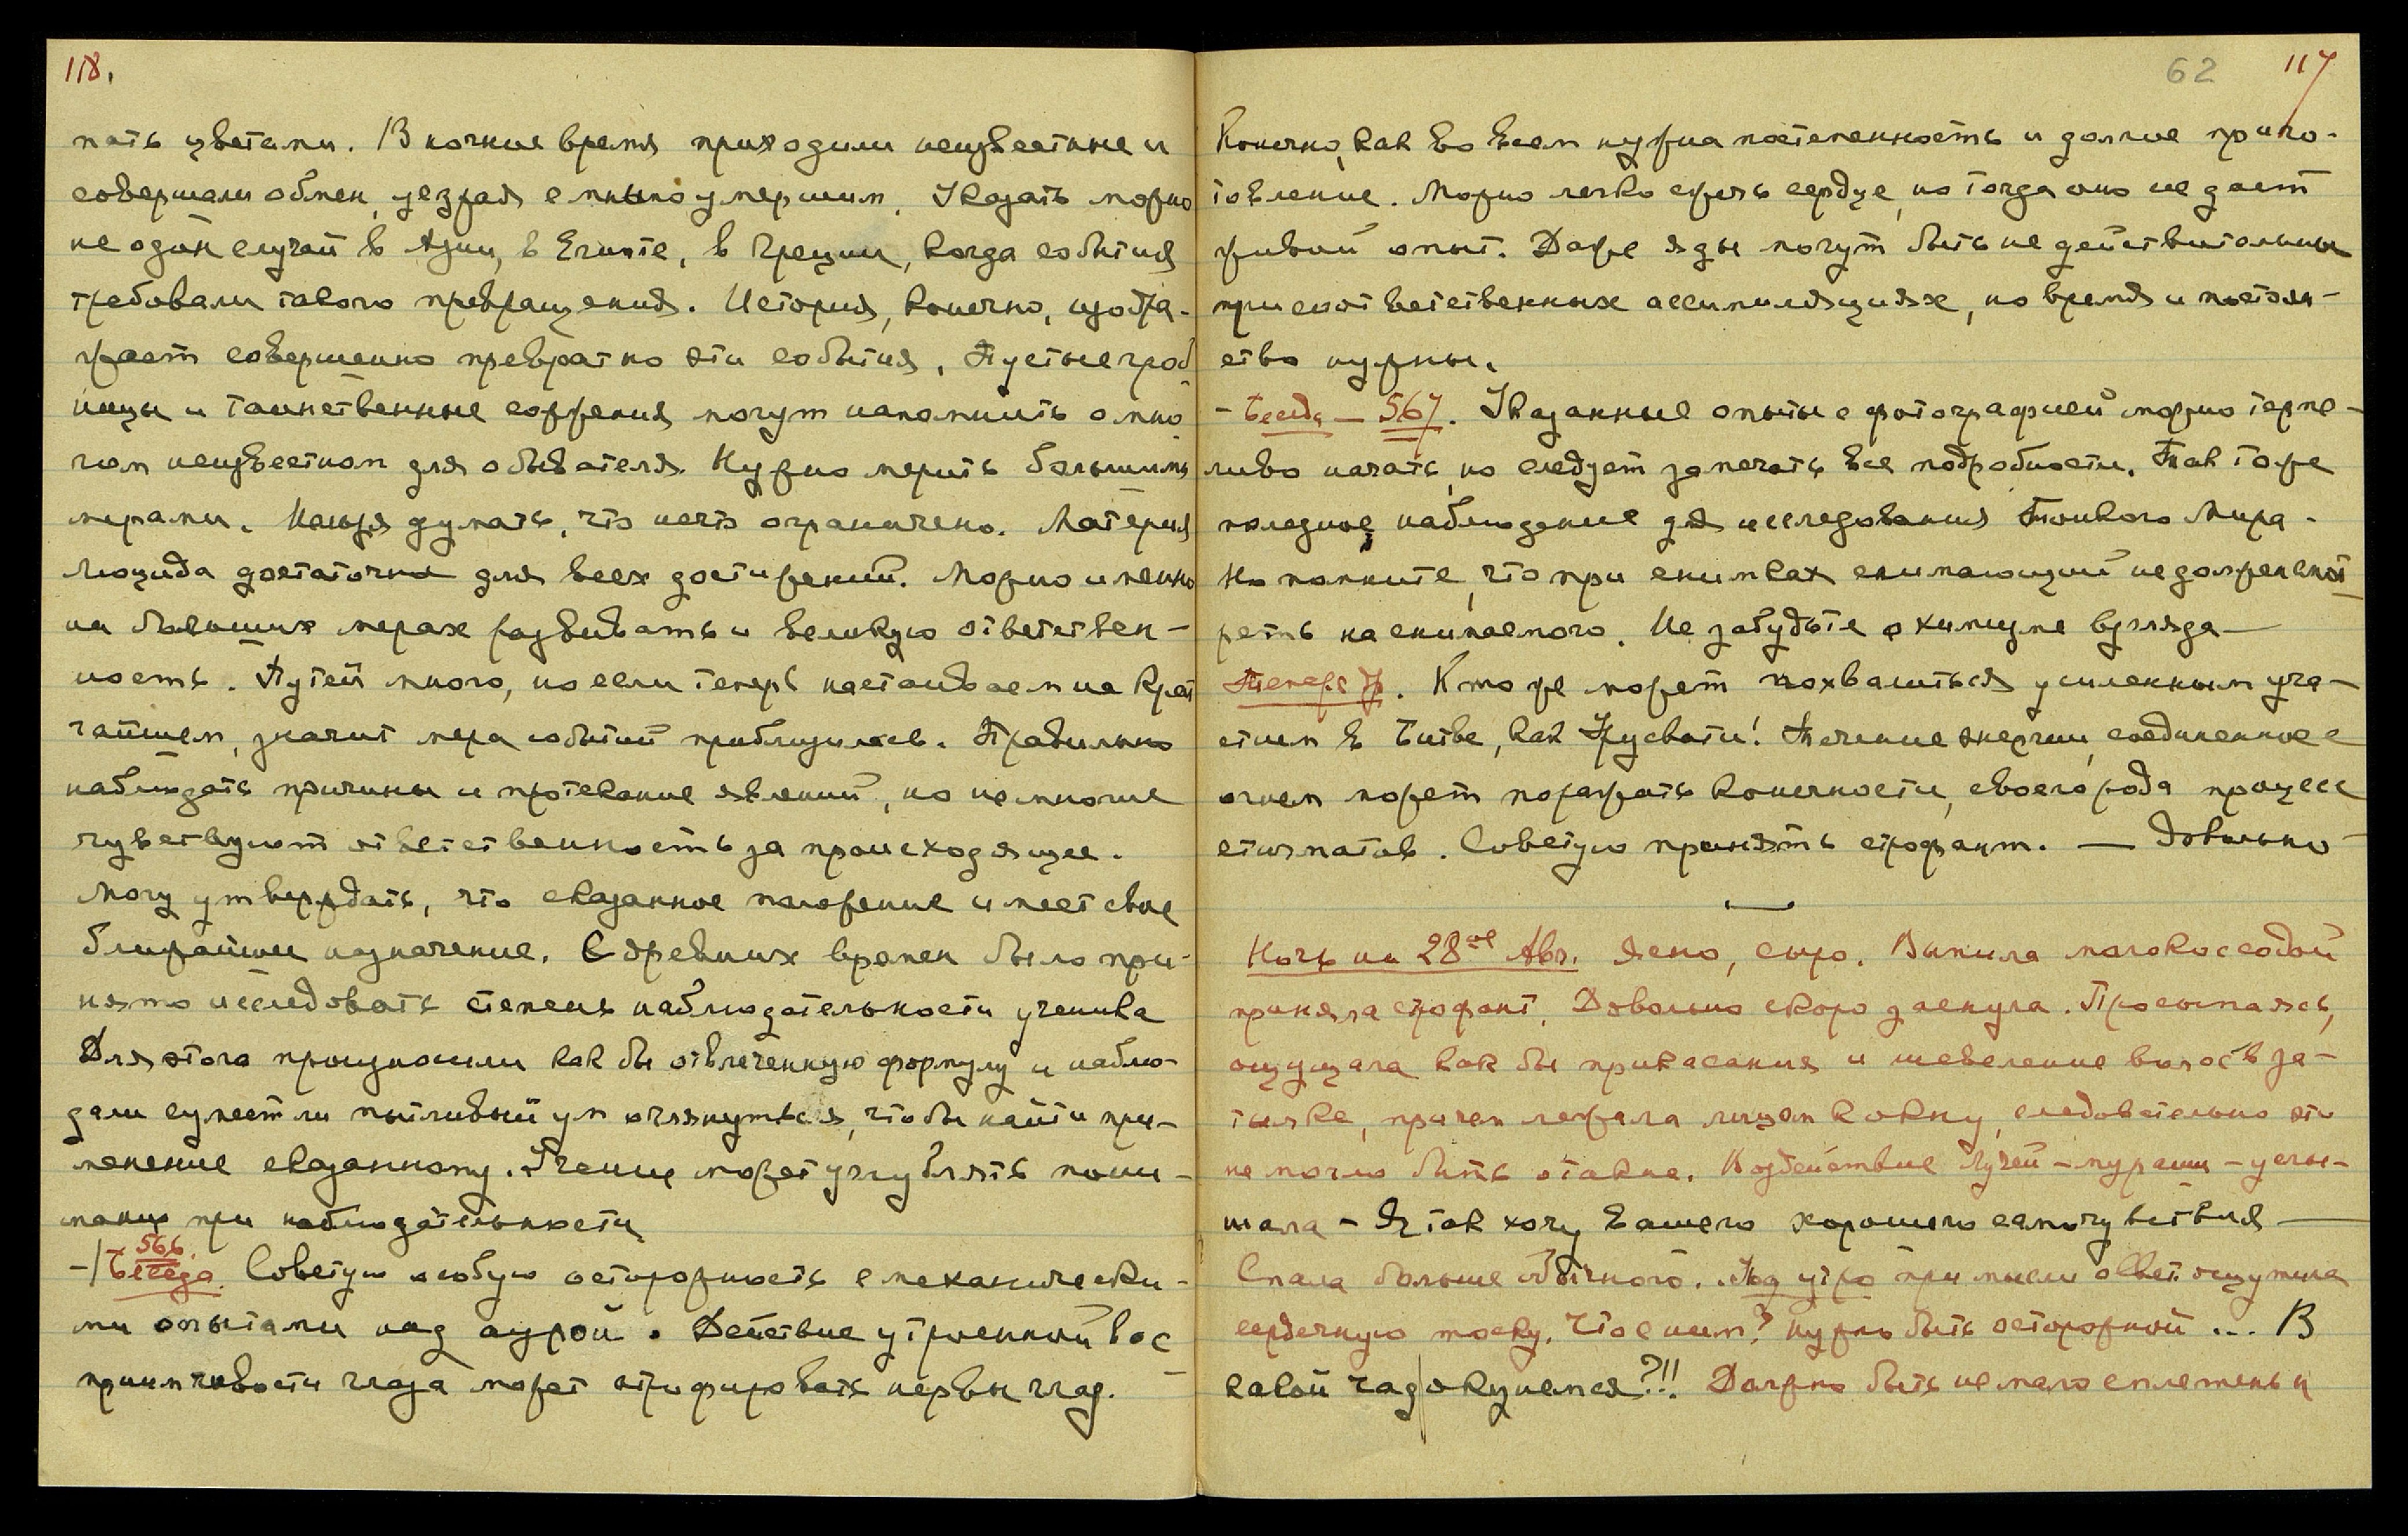 118.
пать цветами. В ночное время приходили неизвестные и
совершали обмен, уезжая с мнимо умершим. Указать можно
не один случай в Азии, в Египте, в Греции, когда события
требовали такого превращения. История, конечно, изобра-
жает совершенно превратно эти события. Пустые гроб
ницы и таинственные сожжения могут напомнить о мно
гом неизвестном для обывателя. Нужно мерить большими
мерами. Нельзя думать, что нечто ограничено. Материя
Люцида достаточна для всех достижений. Можно именно
на больших мерах развивать и великую ответствен-
ность. Путей много, но если теперь настаиваем на крат
чайшем, значит мера событий приблизилась. Правильно
наблюдать причины и протекание явлений, но немногие
чувствуют ответственность за происходящее.
Могу утверждать, что сказанное положение имеет свое
ближайшее назначение. С древних времен было при-
нято исследовать степень наблюдательности ученика
Для этого произносили как бы отвлеченную формулу и наблю-
дали сумеет ли пытливый ум оглянуться, чтобы найти при-
менение сказанному. Учение может углублять пони-
мание при наблюдательности
566.
– Беседа. Советую особую осторожность с механически-
ми опытами над аурой. Действие утроенной вос
приимчивости глаза может атрофировать нервы глаз.
62 117
Конечно, как во всем нужна постепенность и долгое приго-
товление. Можно легко сжечь сердце, но тогда оно не даст
живой опыт. Даже яды могут быть не действительны
при соответственных ассимиляциях, но время и постоян-
ство нужны.
– Беседа – 567. Указанные опыты с фотографией можно терпе-
ливо начать, но следует замечать все подробности. Так тоже
полезное наблюдение для исследования Тонкого Мира.
Но помните, что при снимках снимающий не должен смот
реть на снимаемого. Не забудьте о химизме взгляда –
Теперь Др. Кто же может похвалиться усиленным уча-
стием в Битве, как Урусвати! Течение энергии, соединенное с
огнем может поражать конечности, своего рода процесс
стигматов. Советую принять строфант. — Довольно –
Ночь на 28ое Авг. Ясно, сыро. Выпила молоко с содой
приняла строфант. Довольно скоро заснула. Просыпаясь,
ощущала как бы прикасания и шевеление волос в за-
тылке, причем лежала лицом к окну, следовательно это
не могло быть от окна. Воздействие Лучей – мураши – услы-
шала – Я так хочу вашего хорошего самочувствия —
Спала больше обычного. Под утро при мысли о Свет. ощутила
сердечную тоску. Что с ним? Нужно быть осторожной ... В
какой чад окунемся?!! Должно быть не мало сплетень и